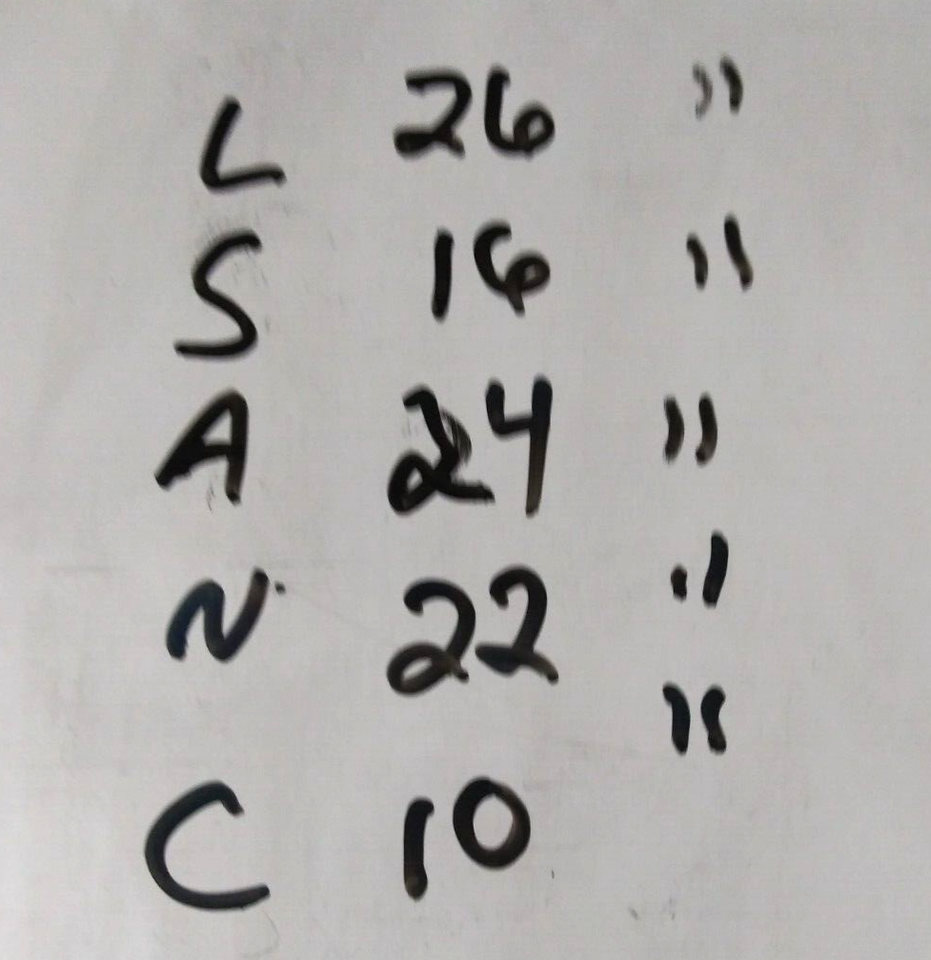 L 26 "
S 16 "
A 24 "
N 22 "
C 10 "